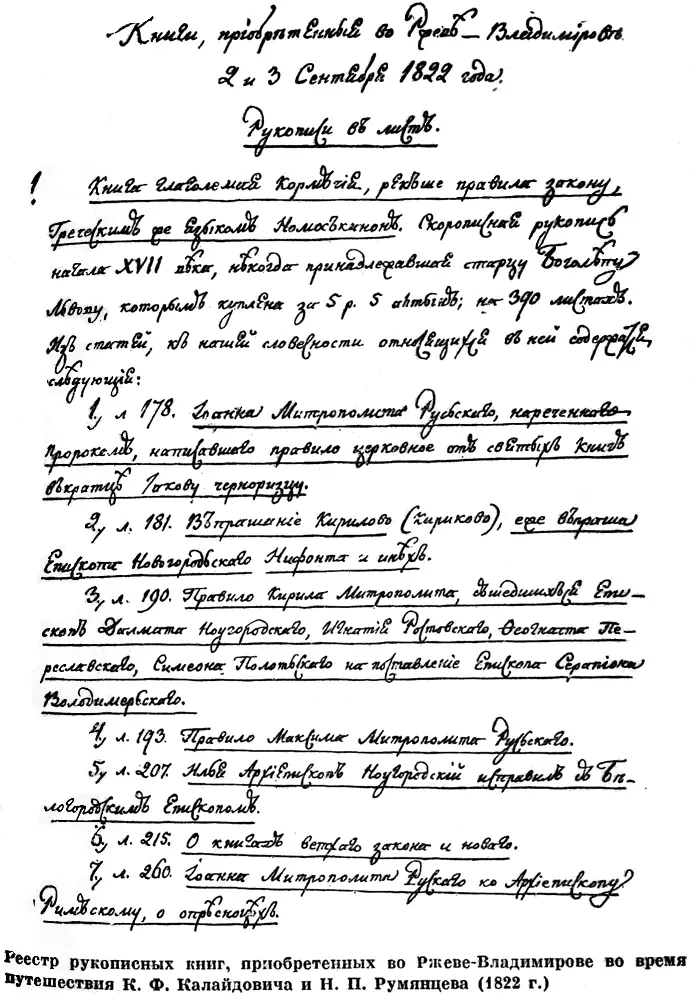 Книги, пріобрѣтенныя во Ржевѣ-Владиміровѣ
2 и 3 Сентября 1822 года.
Рукописи въ листъ.
1 Книга глаголемая Кормчія, рекъше правила закону,
Греческимъ же языкомъ Номоканонъ. Скорописная рукопись
начала XVII вѣка, нѣкогда принадлежавшая старцу Боголѣпу
Львову, которымъ куплена за 5 р. 5 алтынъ; на 390 листахъ.
Изъ статей, къ нашей словесности относящихся въ ней содержатся
слѣдующія:
1, л 178. Іоанна Митрополита Русьскаго, нареченнаго
пророкомъ, написавшаго правило церковное отъ святыхъ книгъ
въкратцѣ Іакову черноризцу.
2, л. 181. Въпрашаніе Кирилово (Кириково), еже въпраша
Епископа Новогородьскаго Нифонта и инѣхъ.
3, л. 190. Правило Кирила Митрополита, съшедшихъся Епи-
скопъ Далмата Ноугородскаго, Игнатія Ростовскаго, Ѳеогнаста Пе-
реславскаго, Симеона Полотьскаго на поставленіе Епископа Серапіона
Володимерьскаго.
4, л. 193. Правило Максима Митрополита Русьскаго.
5, л. 207. Илья Архіепископъ Ноугородскій исправилъ съ Бѣ-
логородскимъ Епископомъ.
6, л. 215. О книгахъ ветхаго закона и новаго.
7, л. 260. Іоанна Митрополита Рускаго ко Архіепископу
Римъскому, о опрѣсноцѣхъ.
Реестр рукописных книг, приобретенных во Ржеве-Владимирове во время
путешествия К. Ф. Калайдовича и Н. П. Румянцева (1822 г.)